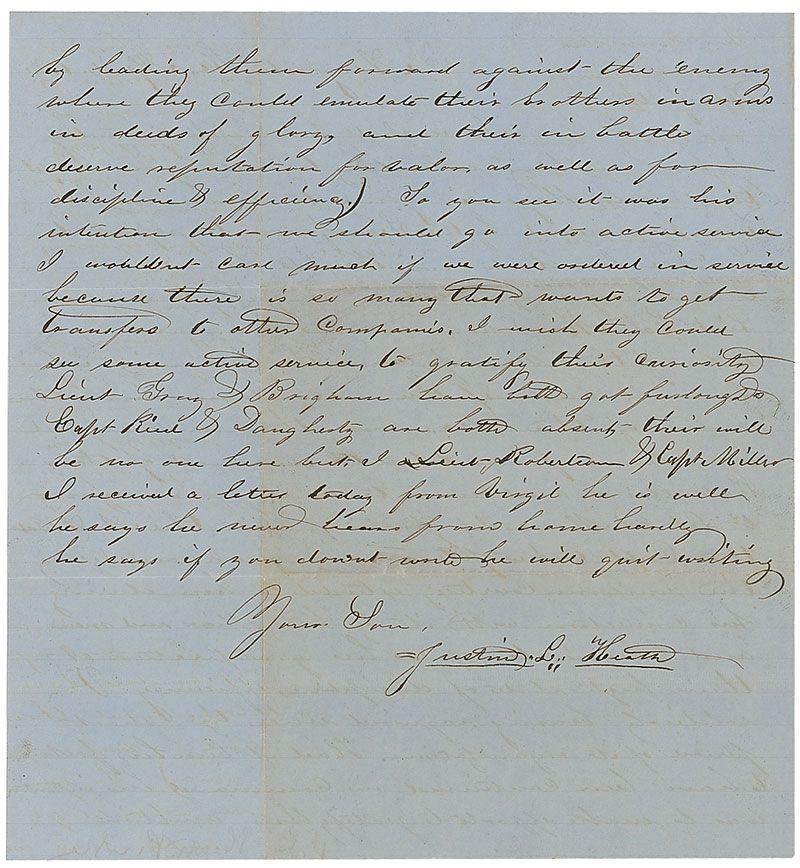 by leading them forward against the enemy
where they could emulate their brothers in arms
in deeds of glory, and their in battle
deserve reputation for valor, as well as for
discipline & efficiency.) So you see it was his
intention that we should go into active service
I wouldnt care much if we were ordered in service
because there is so many that wants to get
transfers to other Companies. I wish they could
see some active service, to gratify their curiosity
Lieut Gray & Brigham have both got furloughs
Capt & Daugherty are both absent, their will
be no one here but I Lieut, Robertson & Capt. Miller
I received a letter today from Virgil he is well
he says he never hears from home hardly
he says if you downt write he will quit writing
Your Son,
Justin, L,, Heath